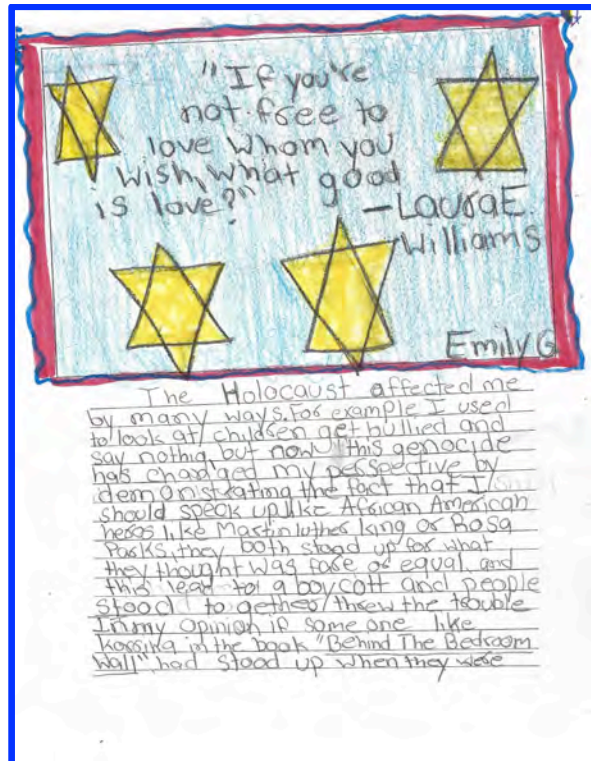 "If you're
not free to
love whom you
wish, what good
is love?"
-Laura E.
Williams
Emily G
The Holocaust affected me
by many ways. For example I used
to look at children get bullied and
say nothig but now this genocide
has changed my perspective by
demonistrating the fact that I
should speak up like African American
heros like Martin luther king or Rosa
Parks, they both stood up for what
they thought was fare or equal and
this lead to a boycott and people
stood to gether threw the trouble
In my opinion if some one like
korrina in the book "Behind The Bedroom
Wall", had stood up when they were